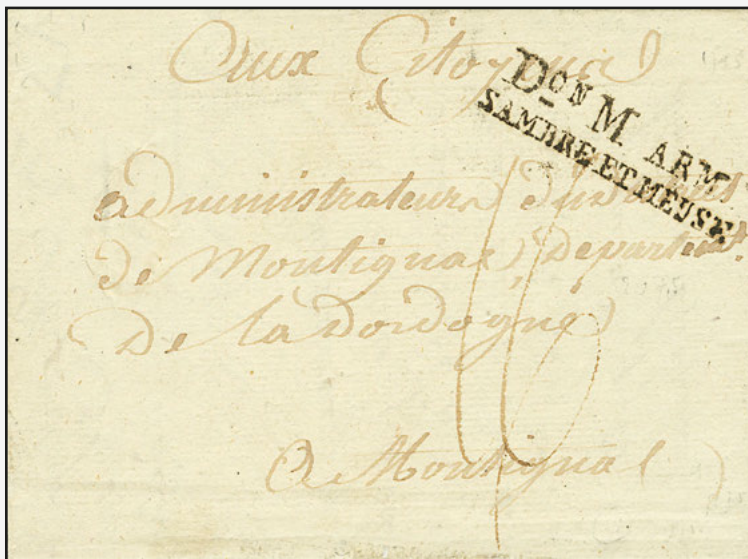 Aux Citoyens
DON M ARM
SAMBRE ET MEUSE
administrateurs du
de Montignac, Departemt.
De la Dordogne
A Montignac